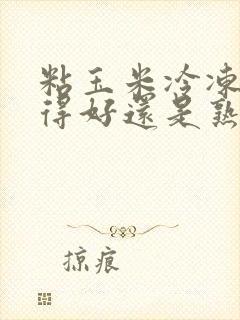 粘玉米冷凍
得好還是熟
掠痕